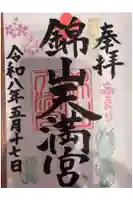 奉拝
錦山天満宮
令和八年五月十七日